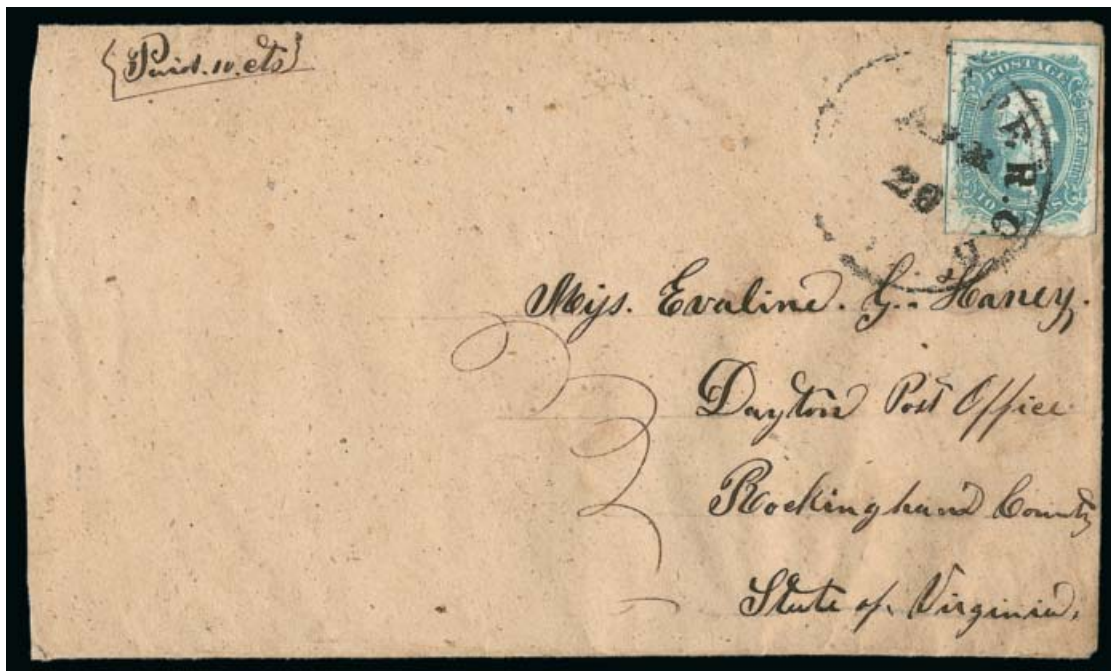 {Paid. 10. cts}
POSTAGE
10 CENTS
20
Miss. Evaline. G.. Haney.
Dayton Post Office
Rockingham County
State of. Virginia.